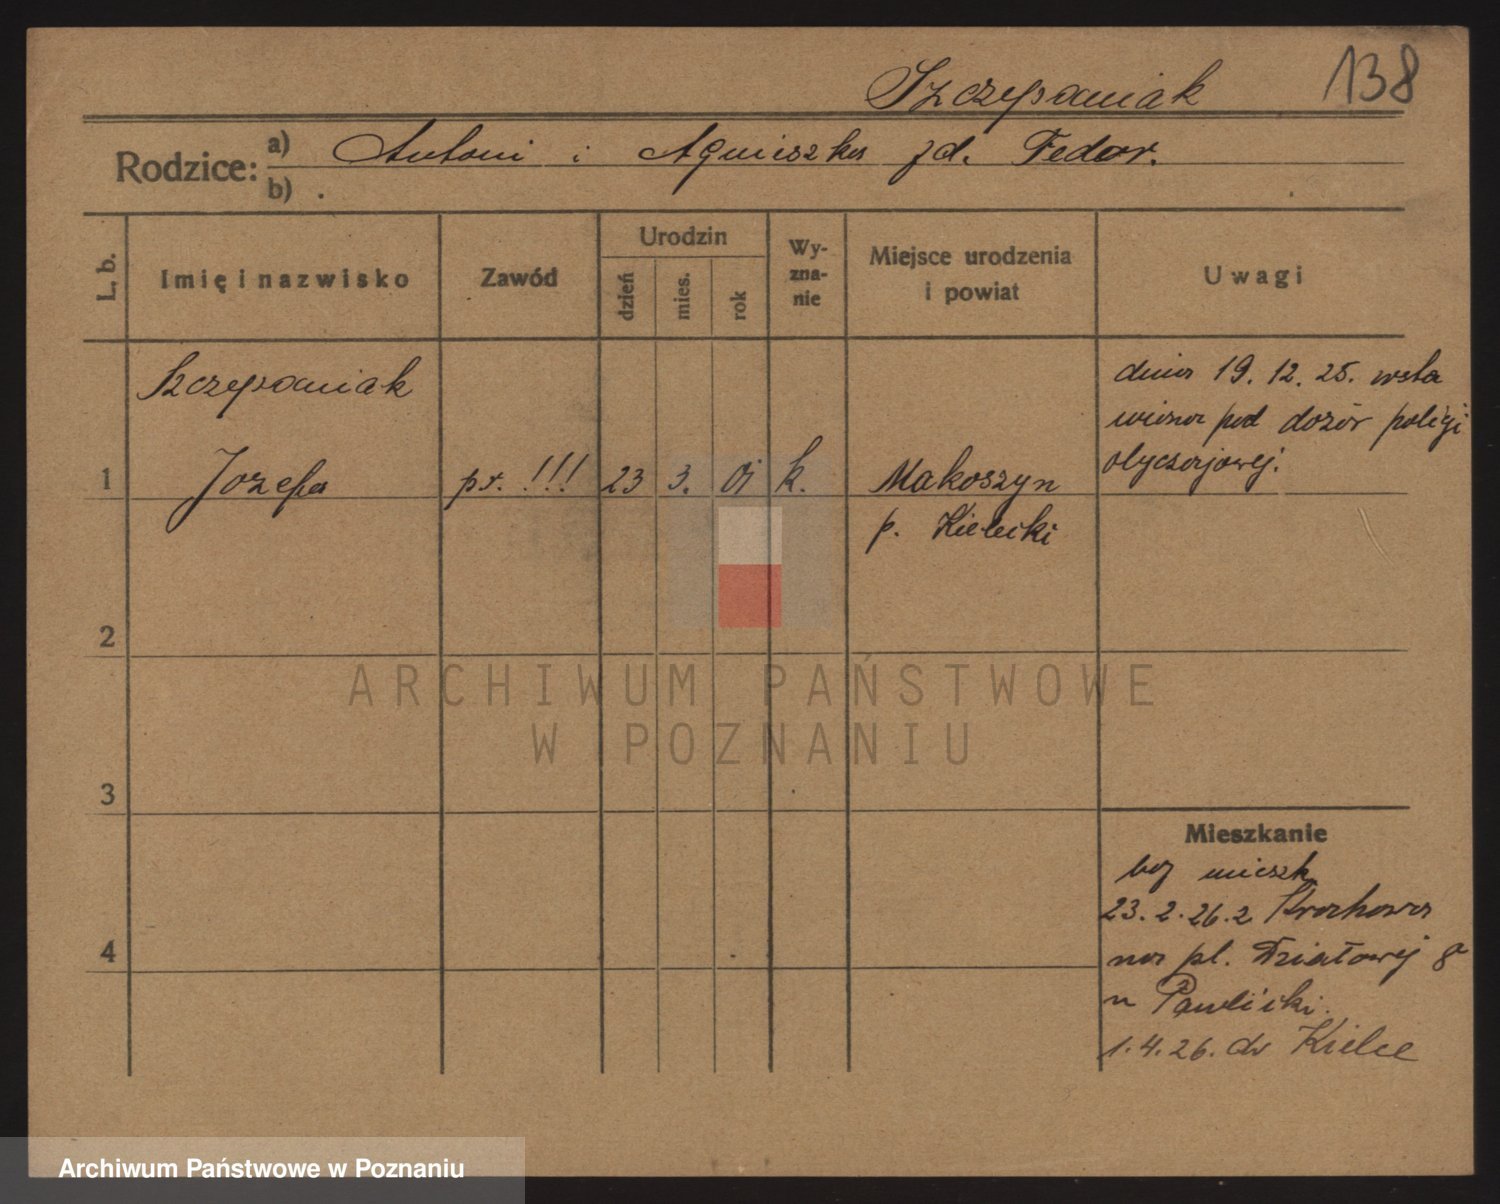 138
Szczepaniak
Rodzice: a) Antoni i Agnieszka zd. Fedor.
b)
L. b.
Imię i nazwisko
Zawód
Urodzin
dzień
mies.
rok
Wy-
zna-
nie
Miejsce urodzenia
i powiat
Uwagi
Szczepaniak
1 Józefa pr. !!! 23 3. 01 k. Makoszyn
p. Kielecki
dnia 19. 12. 25. wsta
wiona pod dozór policji
obyczajowej.
2
3
4
Mieszkanie
bez mieszk
23. 2. 26. z Krakowa
na pl. Działowej 8
u Pawlicki.
1. 4. 26. do Kielce
ARCHIWUM PAŃSTWOWE
W POZNANIU
Archiwum Państwowe w Poznaniu